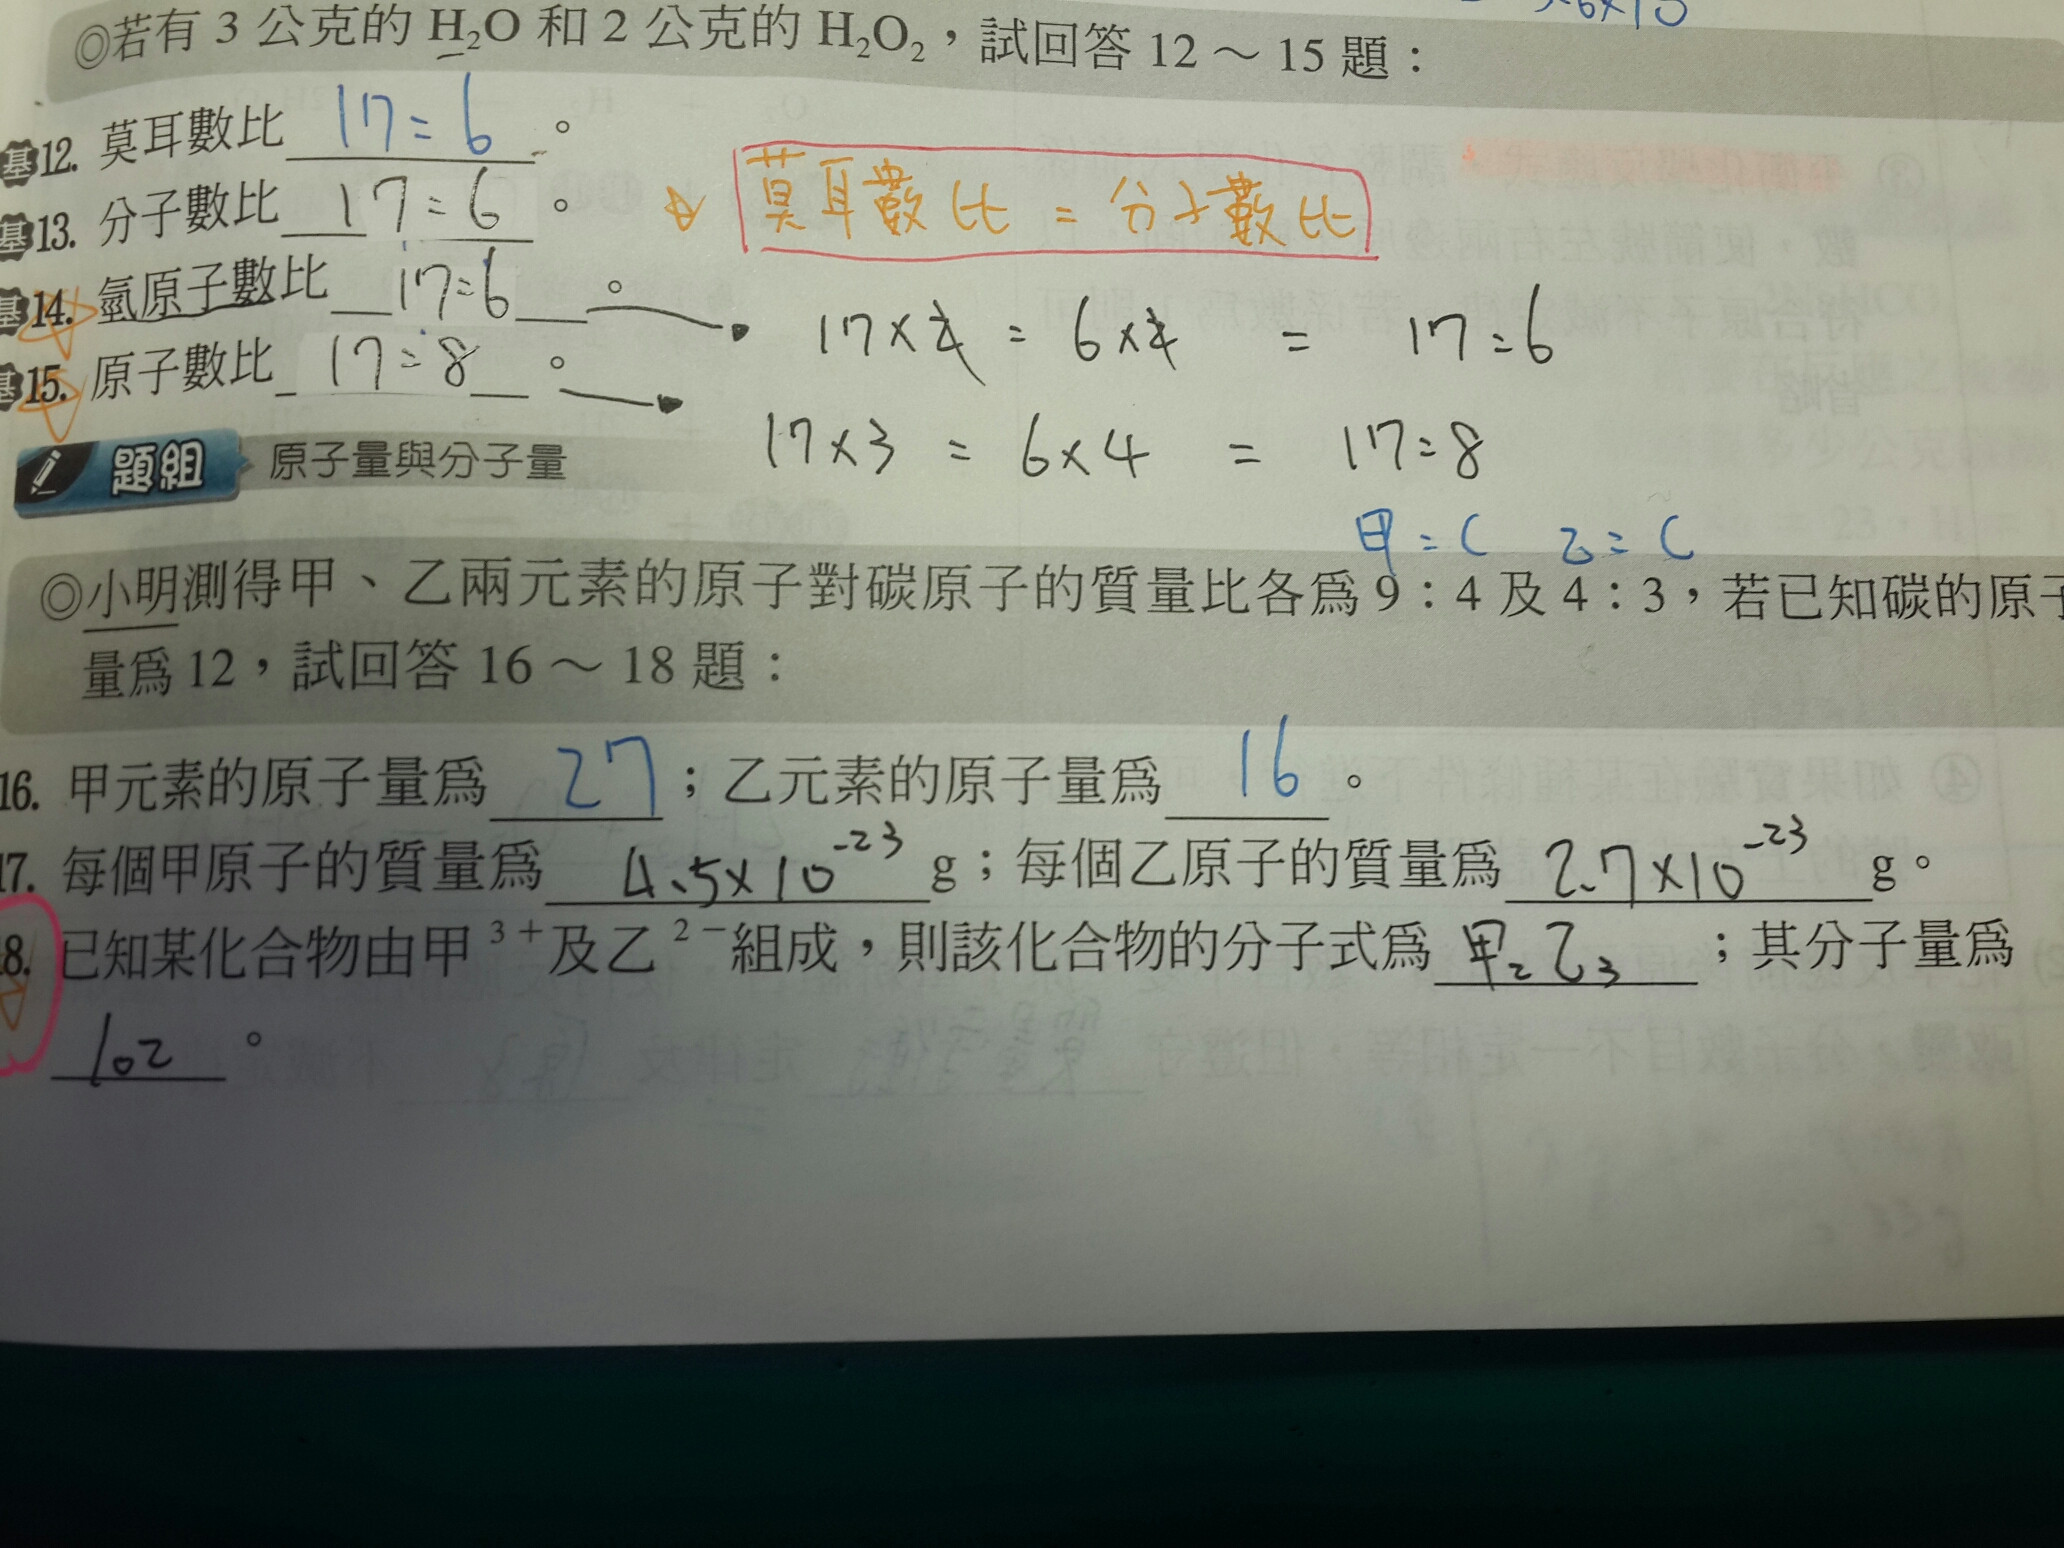 ◎若有 3 公克的 H₂O 和 2 公克的 H₂O₂，試回答 12～15 題：
基12. 莫耳數比 17:6 。
基13. 分子數比 17:6 。 莫耳數比 = 分子數比
基14. 氫原子數比 17:6 。 17×2 : 6×2 = 17:6
基15. 原子數比 17:8 。 17×3 : 6×4 = 17:8
題組 原子量與分子量
甲:C 乙:C
◎小明測得甲、乙兩元素的原子對碳原子的質量比各爲 9：4 及 4：3，若已知碳的原子
量爲 12，試回答 16～18 題：
16. 甲元素的原子量爲 27 ；乙元素的原子量爲 16 。
17. 每個甲原子的質量爲 4.5×10⁻²³ g；每個乙原子的質量爲 2.7×10⁻²³ g。
18. 已知某化合物由甲³⁺及乙²⁻組成，則該化合物的分子式爲 甲₂乙₃ ；其分子量爲
102 。